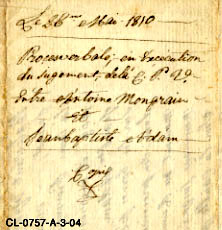 Le 28me Mai 1810
Proces verbale, en Execution
du Jugement, de la C. P. D.
Entre Antoine Mongrain
Et
Jean baptiste Adam
Copy
CL-0757-A-3-04